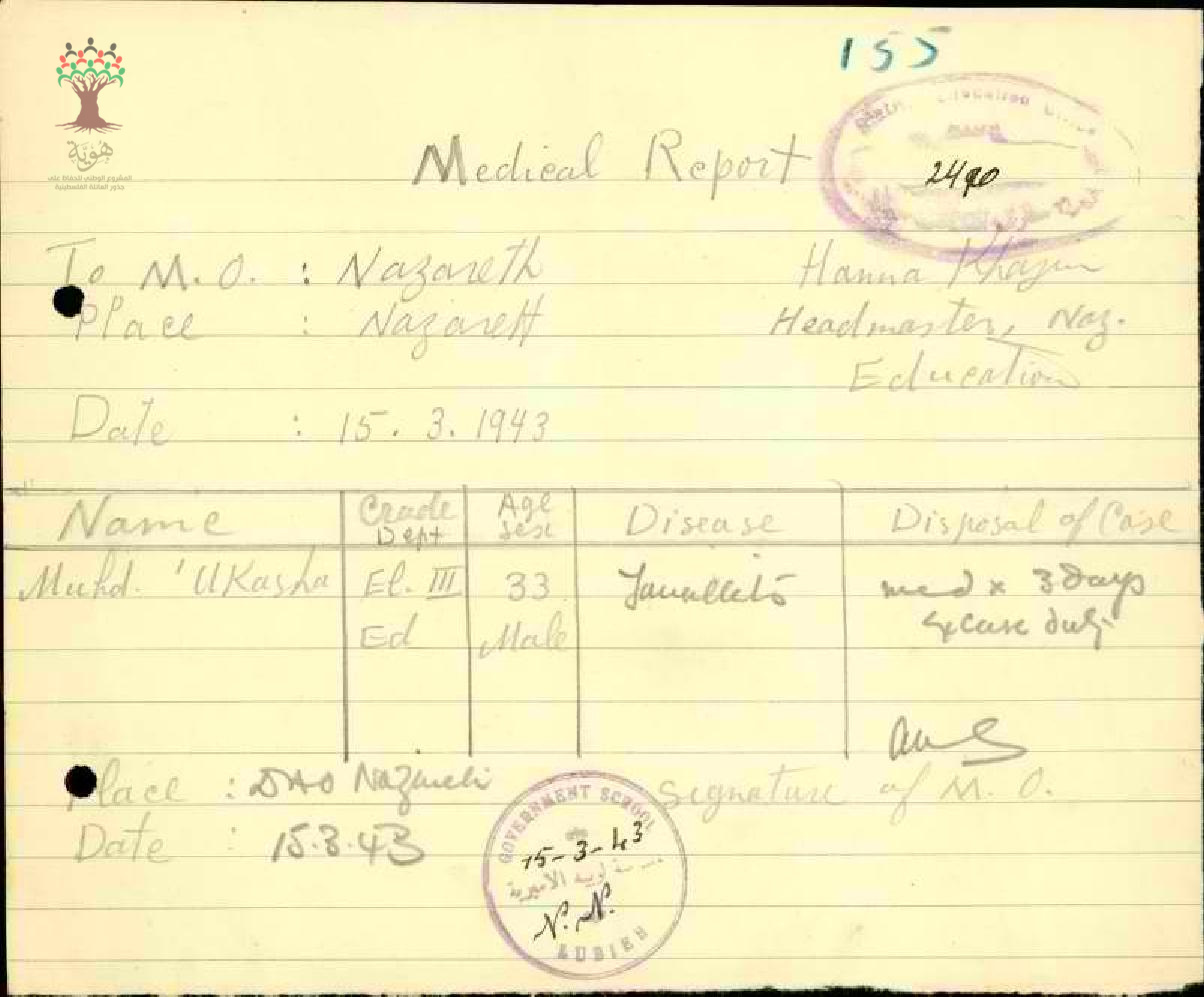 155
هوية
المشروع الوطني للحفاظ على
جذور العائلة الفلسطينية
Medical Report
Education Office
2490
To M.O. : Nazareth
Hanna Khazen
Place : Nazareth
Headmaster, Naz.
Education
Date : 15. 3. 1943
Name Grade Dept Age Sex Disease Disposal of Case
Muhd. 'UKasha El. III 33 med x 3 days
Ed Male excuse duty
Place : Nazareth
Signature of M. O.
Date : 15.3.43
GOVERNMENT SCHOOL
15-3-43
الاميرية
N.N.
LUBIEH